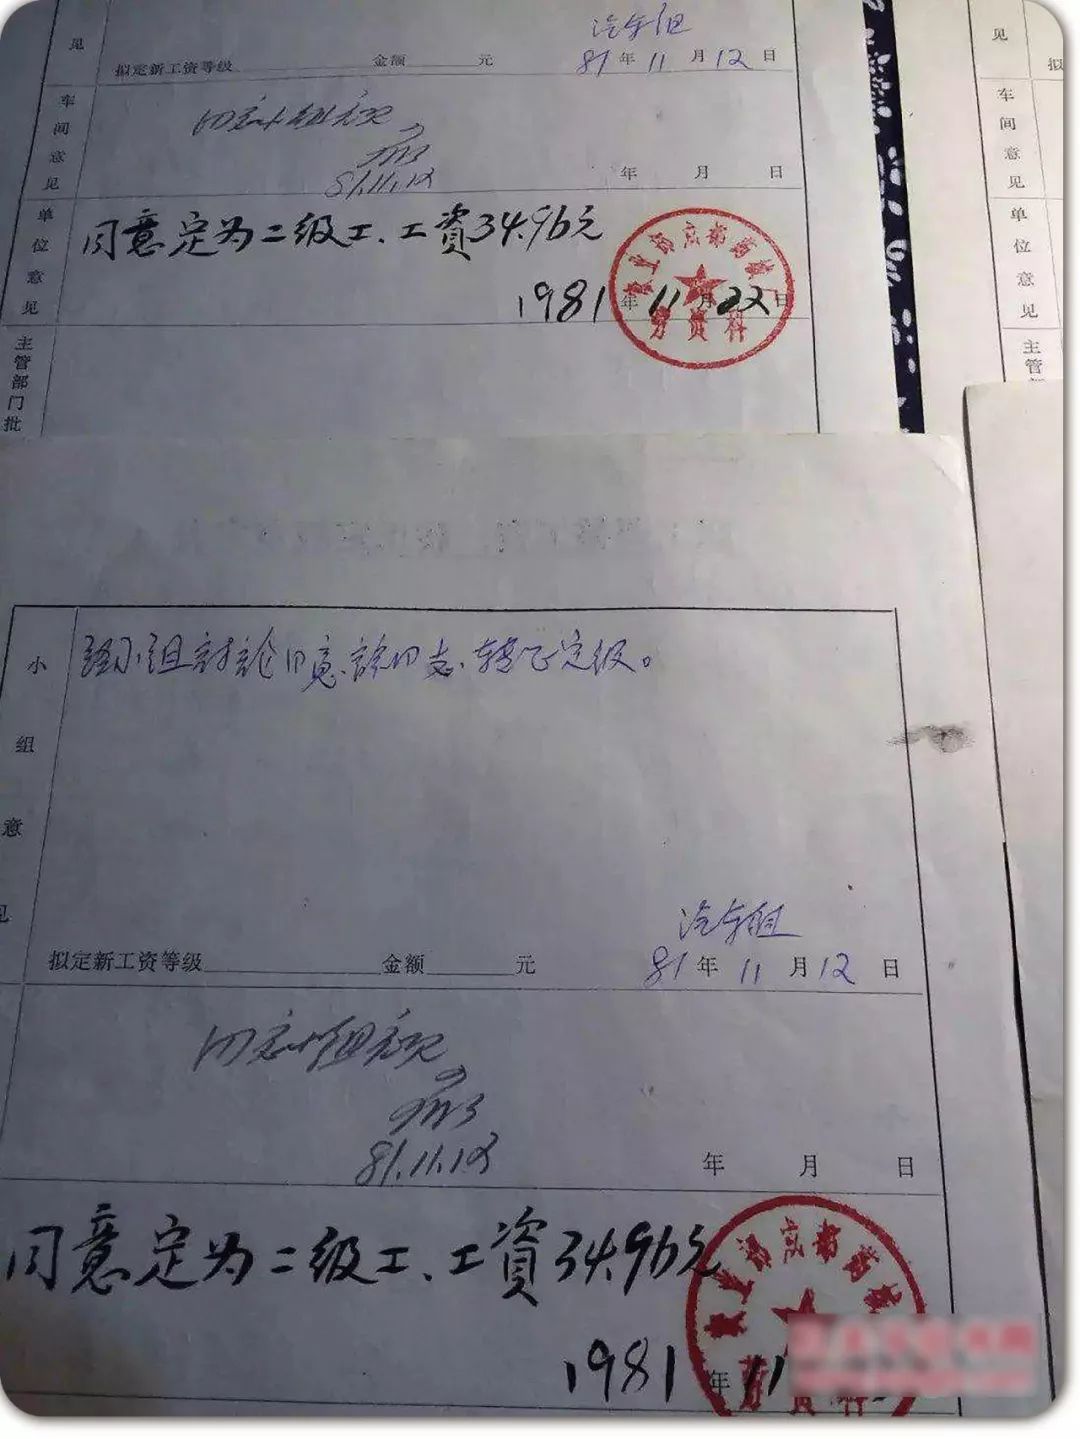 见
汽车组
拟定新工资等级 金额 元 81年11月12日
车间意见
同意小组意见
81.11.12
年 月 日
单位意见
同意定为二级工、工資34.96元
1981年11月22日
劳资科
主管部门批
见
拟
车间意见
单位意见
主管部
小组意见
经小组讨论同意该同志转正定级。
汽车组
拟定新工资等级 金额 元 81年11月12日
同意小组意见
81.11.12
年 月 日
同意定为二级工、工資34.96元
1981年11